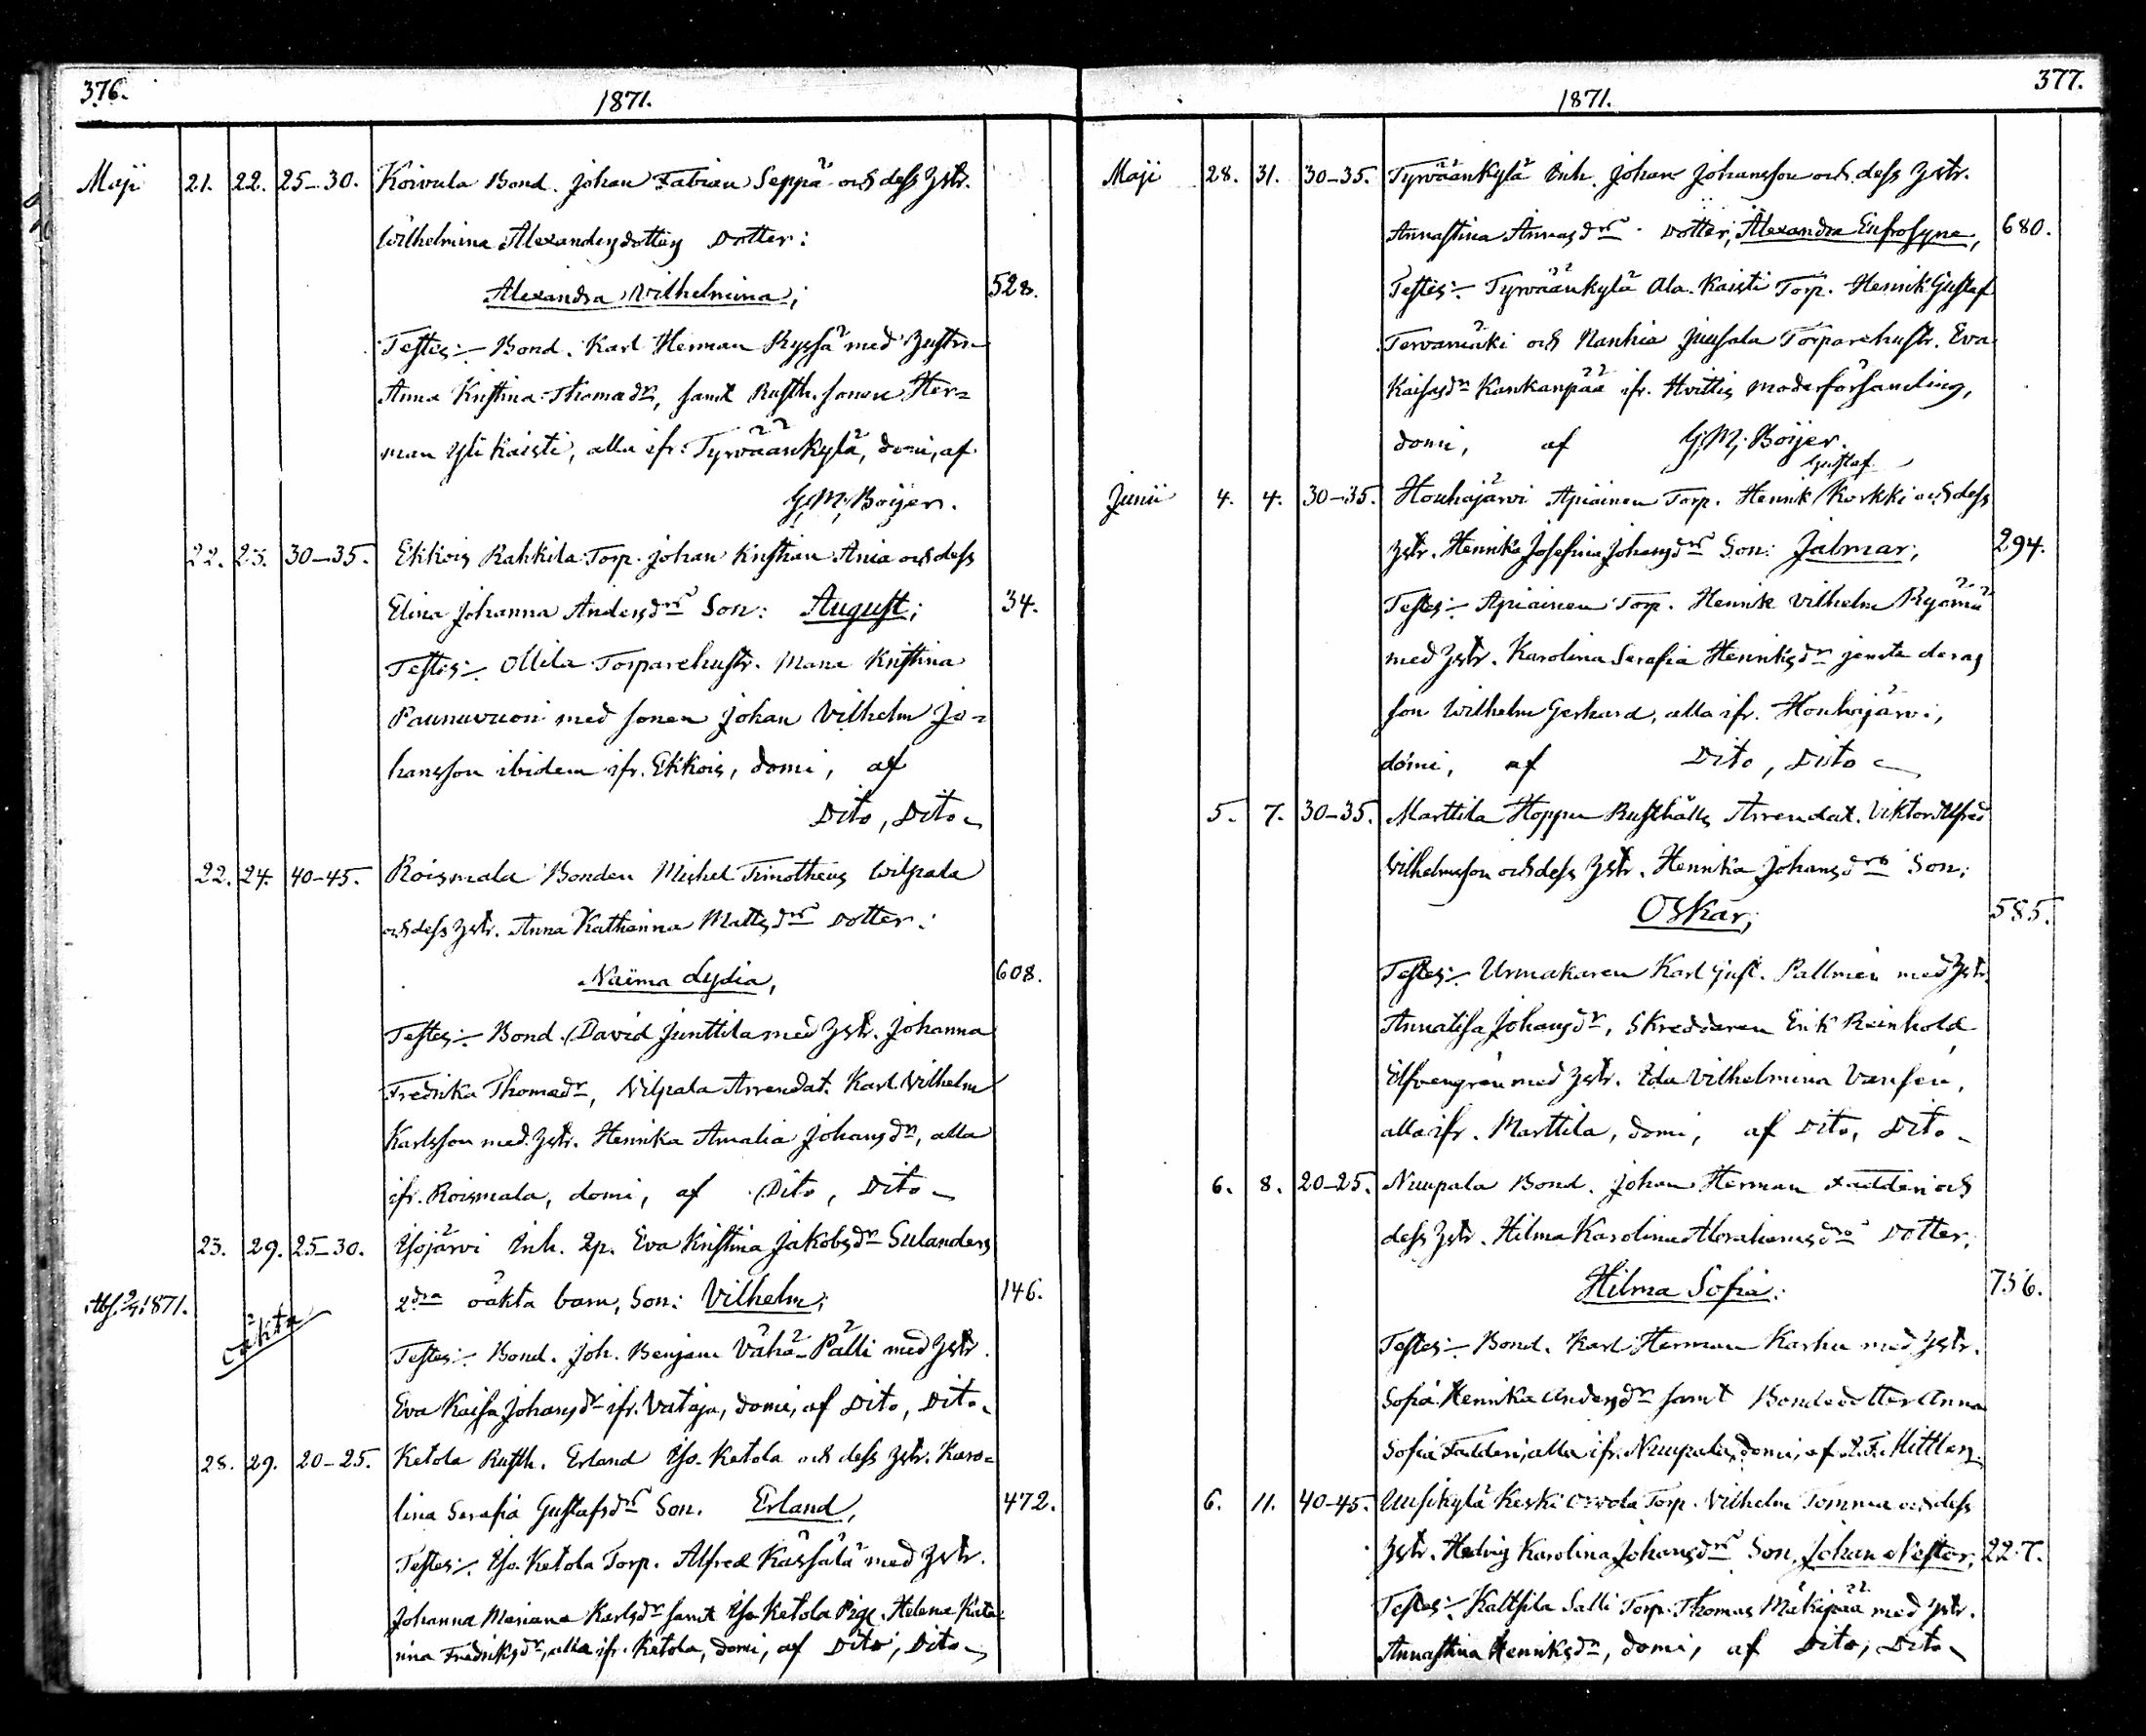 376.
1871.
Maji 21. 22. 25-30. Koivula Bond. Johan Fabian Seppä och dess Hstr.
Wilhelmina Alexandersdotters Dotter:
Alexandra Wilhelmina; 528.
Testes:- Bond. Karl Herman Ryssä med Hustrn
Anna Kristina Thomadr, samt Rusth. sonen Her=
man Yli Kaisti, alla ifr. Tyrväänkylä, domi, af
G. M. Boijer.
22. 23. 30-35. Ekkois Rahkila Torp. Johan Kristian Ania och dess
Elina Johanna Andersdrs Son: August; 34.
Testes:- Ollila Torparehustr. Maria Kristina
Paunuvuori med sonen Johan Vilhelm Jo=
hansson ibidem ifr. Ekkois, domi, af
Dito, Dito
22. 24. 40-45. Roismala Bonden Michel Timotheus Wilpala
och dess Hstr. Anna Katharina Mattsdrs Dotter:
Naima Lydia, 608.
Testes:- Bond. David Junttila med Hstr. Johanna
Fredrika Thomadr, Vilpala Arrendat. Karl Vilhelm
Karlsson med Hstr. Henrika Amalia Johansdr, alla
ifr. Roismala, domi, af Dito, Dito
23. 29. 25-30. Isojärvi Inh. Qp. Eva Kristina Jakobsdr Sulanders
2dra oäkta barn, Son: Vilhelm; 146.
1871.
oäkta
Testes:- Bond. Joh. Benjam Vähä-Pälli med Hstr.
Eva Kaisa Johansdr ifr. Vataja, domi, af Dito, Dito
28. 29. 20-25. Ketola Rusth. Erland Iso-Ketola och dess Hstr. Karo=
lina Serafia Gustafsdrs Son. Erland, 472.
Testes:- Iso-Ketola Torp. Alfred Kässälä med Hstr.
Johanna Mariana Karlsdr samt Iso Ketola Pige. Helena Kata=
rina Fredriksdr, alla ifr. Ketola, domi, af Dito, Dito
377.
1871.
Maji 28. 31. 30-35. Tyrväänkylä Inh. Johan Johansson och dess Hstr.
Annastina Annasdrs Dotter, Alexandra Eufrosyne, 680.
Testes:- Tyrväänkylä Ala-Kaisti Torp. Henrik Gustaf
Tervamäki och Nanhia Juusala Torparehustr. Eva
Kaisasdr Kankanpää ifr. Hvittis moderförsamling,
domi, af G. M. Boijer.
Gustaf
Junii 4. 4. 30-35. Houhajärvi Apiainen Torp. Henrik Korkki och dess
Hstr. Henrika Josefina Johansdrs Son: Jalmar; 294.
Testes:- Apiainen Torp. Henrik Vilhelm Ryömä
med Hstr. Karolina Serafia Henriksdr jemte deras
son Wilhelm Gerhard, alla ifr. Houhajärvi,
domi, af Dito, Dito
5. 7. 30-35. Marttila Hoppu Rusthålls Arrendat. Viktor Alfred
Vilhelmsson och dess Hstr. Henrika Johansdrs Son:
Oskar; 585.
Testes:- Urmakaren Karl Gust. Pallmén med Hstr.
Annalisa Johansdr, Skreddaren Erik Reinhold
Elfvengrén med Hstr. Ida Vilhelmina Vansén,
alla ifr. Marttila, domi, af Dito, Dito
6. 8. 20-25. Nuupala Bond. Johan Herman Fadderi och
dess Hstr. Hilma Karolina Abrahamsdrs Dotter,
Hilma Sofia: 756.
Testes:- Bond. Karl Herman Karhu med Hstr.
Sofia Henrika Andersdr samt Bondedotter Anna
Sofia Fadderi, alla ifr. Nuupala, domi, af
6. 11. 40-45. Uusikylä Keski Orvola Torp. Vilhelm Tomma och dess
Hstr. Hedvig Karolina Johansdrs Son, Johan Nestor, 227.
Testes:- Kaltsila Salli Torp. Thomas Mäkipää med Hstr.
Annastina Henriksdr, domi, af Dito, Dito